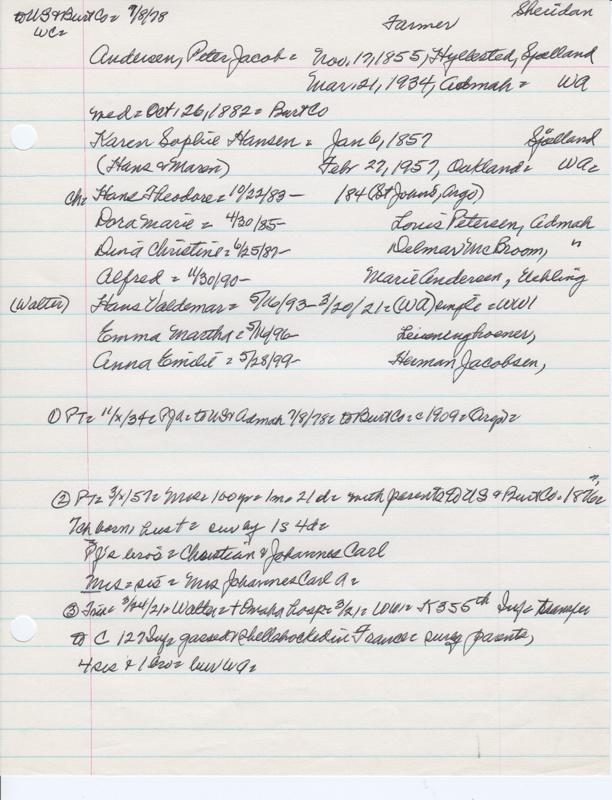 to US & Burt Co = 7/8/78 Farmer Sheridan
WC=
Andersen, Peter Jacob = Nov. 17, 1855, Hyllested, Sjælland
Mar. 21, 1934, Admah = WA
med = Oct. 26, 1882 = Burt Co
Karen Sophie Hansen = Jan 6, 1857 Sjælland
(Hans & Maren) Feb 27, 1957, Oakland = WA=
ch= Hans Theodore = 10/22/83 - 184 (St Johns, Argo)
Dora Marie = 4/30/85 - Louis Petersen, Admah
Dina Christine = 6/25/87 - Delmar McBroom, "
Alfred = 11/30/90 - Marie Andersen, Uehling
(Walter) Hans Valdemar = 5/16/93 - 3/20/21 = (WA) single = WWI
Emma Martha = 5/16/96
Anna Emilie = 5/28/99 - Herman Jacobsen,
① PT = 11/x/34 = PJA = to US & Admah 7/8/78 = to Burt Co = c 1909 = Argo =
② PT = 3/x/57 = Mrs = 100 yr = 1 m = 21 d = with parents to US & Burt Co = 187
7 ch born, husb + surv by 1s 4d =
PJ's bros = Christian & Johannes Carl
Mrs = sis = Mrs Johannes Carl A =
③ Trib = 3/24/21 = Walter = + Omaha hosp = 3/21 = WWI = K 355th Inf = transfer
to C 127 Inf = gassed & shellshocked in France = surv parents,
4 sis & 1 bro = bur WA =